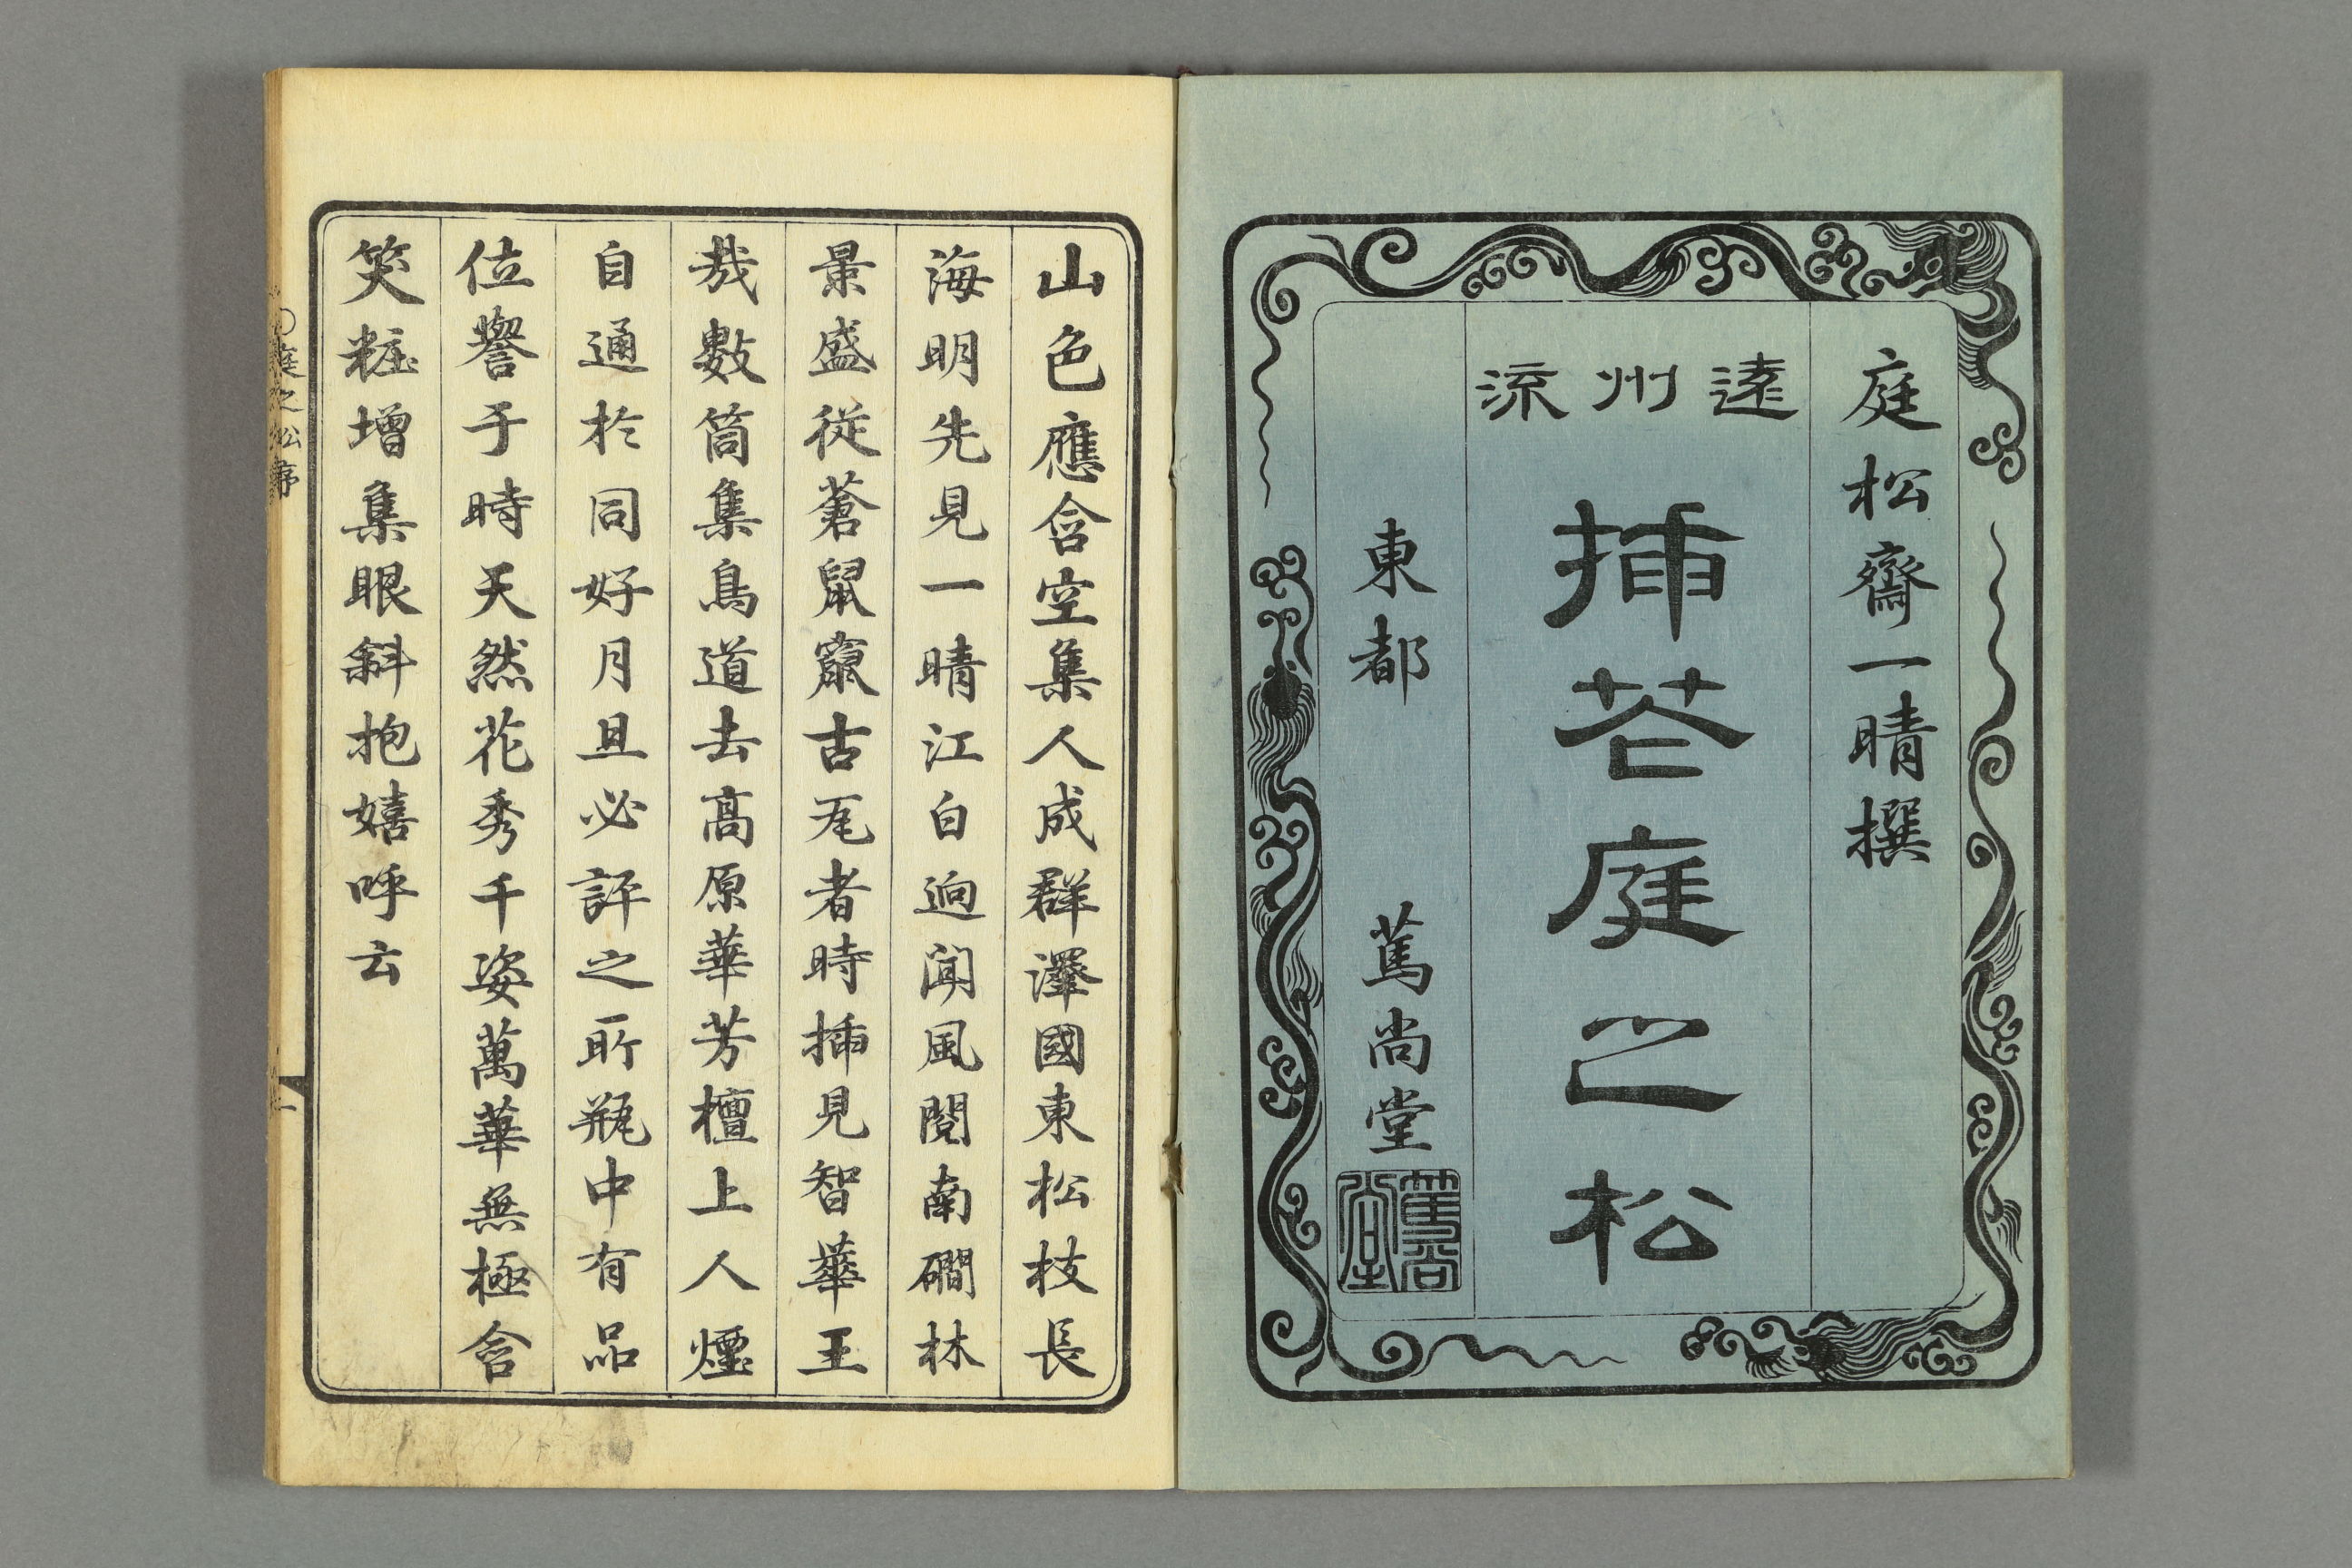 庭松齋一晴撰
遠州流
挿花庭之松
東都　萬尚堂
山色應含空集人成群澤國東松枝長
海明先見一晴江白迥聞風閲南磵林
景盛従蒼鼠竄古瓦者時挿見智華王
哉數筒集鳥道去高原華芳檀上人煙
自通於同好月且必評之所瓶中有品
位譽于時天然花秀千姿萬華無極含
笑粧増集眼斜抱嬉呼云
庭之松序